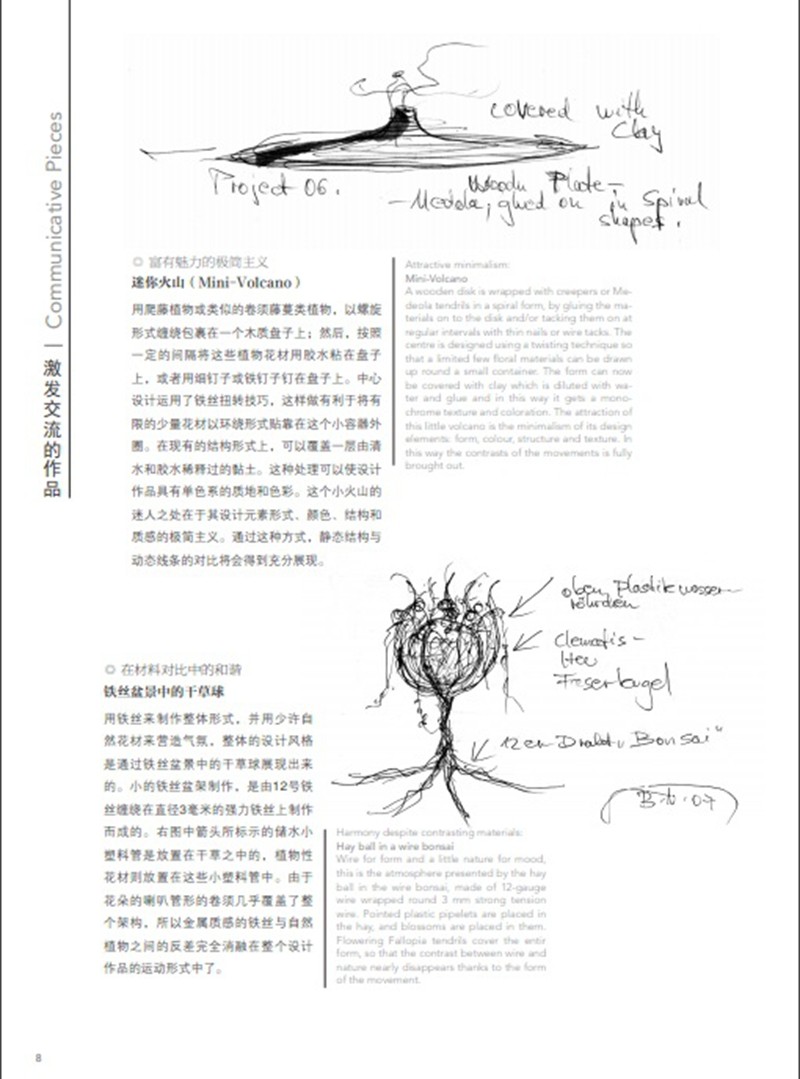 激发交流的作品 | Communicative Pieces
covered with
Clay
Project 06.
Plate -
- Medeola, glued on in Spiral
shapes.
◎ 富有魅力的极简主义
迷你火山（Mini-Volcano）
用爬藤植物或类似的卷须藤蔓类植物，以螺旋
形式缠绕包裹在一个木质盘子上；然后，按照
一定的间隔将这些植物花材用胶水粘在盘子
上，或者用细钉子或铁钉子钉在盘子上。中心
设计运用了铁丝扭转技巧，这样做有利于将有
限的少量花材以环绕形式贴靠在这个小容器外
圈。在现有的结构形式上，可以覆盖一层由清
水和胶水稀释过的黏土。这种处理可以使设计
作品具有单色系的质地和色彩。这个小火山的
迷人之处在于其设计元素形式、颜色、结构和
质感的极简主义。通过这种方式，静态结构与
动态线条的对比将会得到充分展现。
Attractive minimalism:
Mini-Volcano
A wooden disk is wrapped with creepers or Me-
deola tendrils in a spiral form, by gluing the ma-
terials on to the disk and/or tacking them on at
regular intervals with thin nails or wire tacks. The
centre is designed using a twisting technique so
that a limited few floral materials can be drawn
up round a small container. The form can now
be covered with clay which is diluted with wa-
ter and glue and in this way it gets a mono-
chrome texture and coloration. The attraction of
this little volcano is the minimalism of its design
elements: form, colour, structure and texture. In
this way the contrasts of the movements is fully
brought out.
oben Plastikwasser-
röhrchen
Clematis -
12er Draht "Bonsai"
07
◎ 在材料对比中的和谐
铁丝盆景中的干草球
用铁丝来制作整体形式，并用少许自
然花材来营造气氛，整体的设计风格
是通过铁丝盆景中的干草球展现出来
的。小的铁丝盆架制作，是由12号铁
丝缠绕在直径3毫米的强力铁丝上制作
而成的。右图中箭头所标示的储水小
塑料管是放置在干草之中的，植物性
花材则放置在这些小塑料管中。由于
花朵的喇叭管形的卷须几乎覆盖了整
个架构，所以金属质感的铁丝与自然
植物之间的反差完全消融在整个设计
作品的运动形式中了。
Harmony despite contrasting materials:
Hay ball in a wire bonsai
Wire for form and a little nature for mood,
this is the atmosphere presented by the hay
ball in the wire bonsai, made of 12-gauge
wire wrapped round 3 mm strong tension
wire. Pointed plastic pipelets are placed in
the hay, and blossoms are placed in them.
Flowering Fallopia tendrils cover the entir
form, so that the contrast between wire and
nature nearly disappears thanks to the form
of the movement.
8